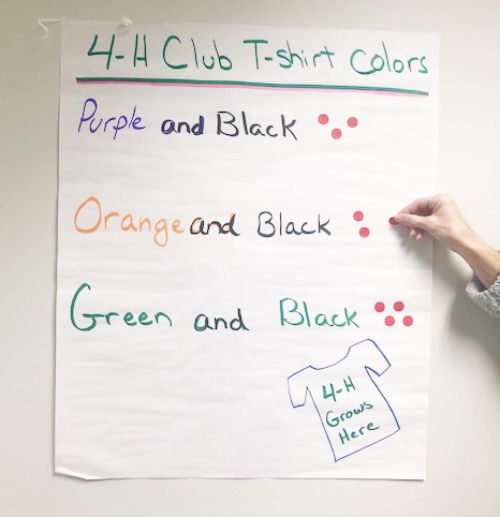 4-H Club T-shirt Colors
Purple and Black
Orange and Black
Green and Black
4-H
Grows
Here